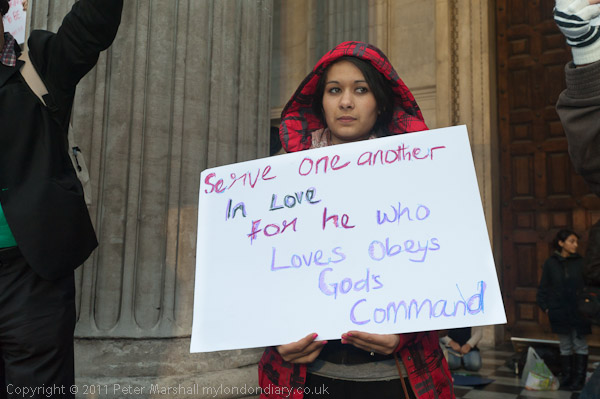 Serve one another
In Love
For he who
Loves Obeys
God's
Command
Copyright © 2011 Peter Marshall mylondondiary.co.uk